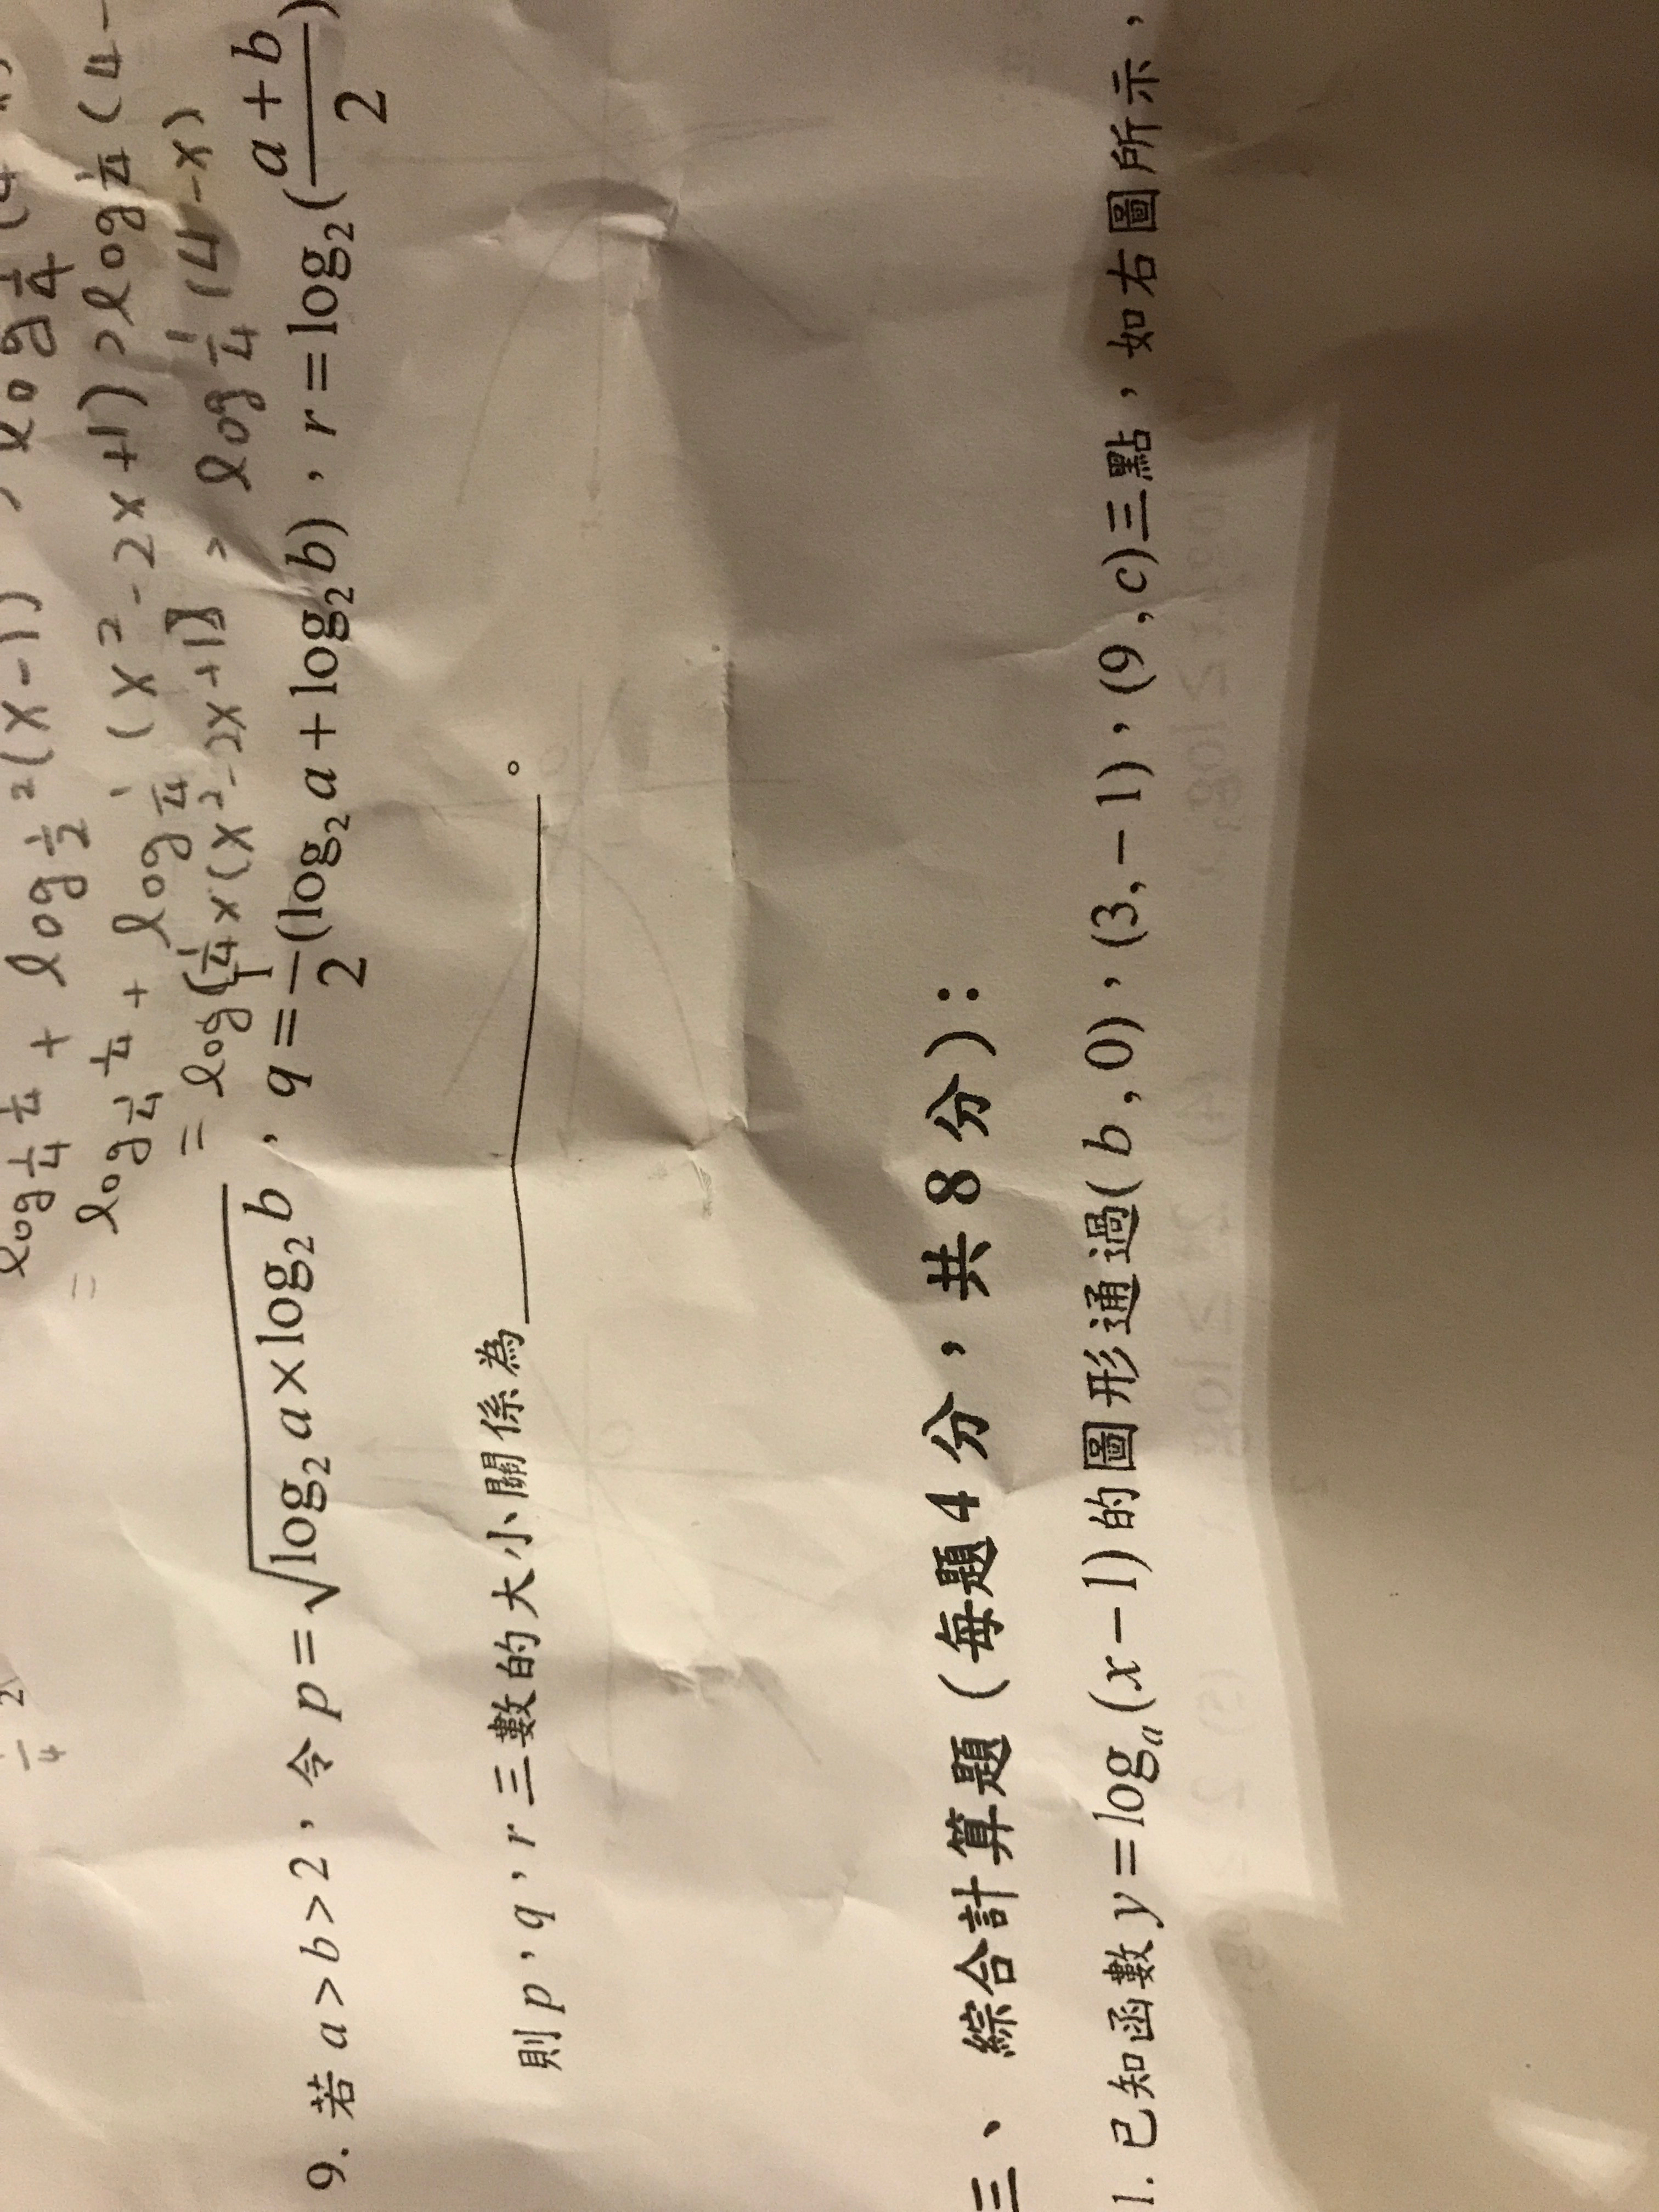 log 1/4 1/4 + log 1/2 ² (x-1) > log 1/4 (4
= log 1/4 1/4 + log 1/4 (x²-2x+1) > log 1/4 (4-
= log (1/4 x (x²-2x+1) > log 1/4 (4-x)
9. 若 a > b > 2，令 p = √(log₂ a × log₂ b)，q = 1/2 (log₂ a + log₂ b)，r = log₂ ((a + b)/2)
則 p，q，r 三數的大小關係為＿＿＿＿。
三、綜合計算題（每題 4 分，共 8 分）：
1. 已知函數 y = logₐ(x − 1) 的圖形通過( b , 0)，(3, − 1)，(9 , c)三點，如右圖所示，